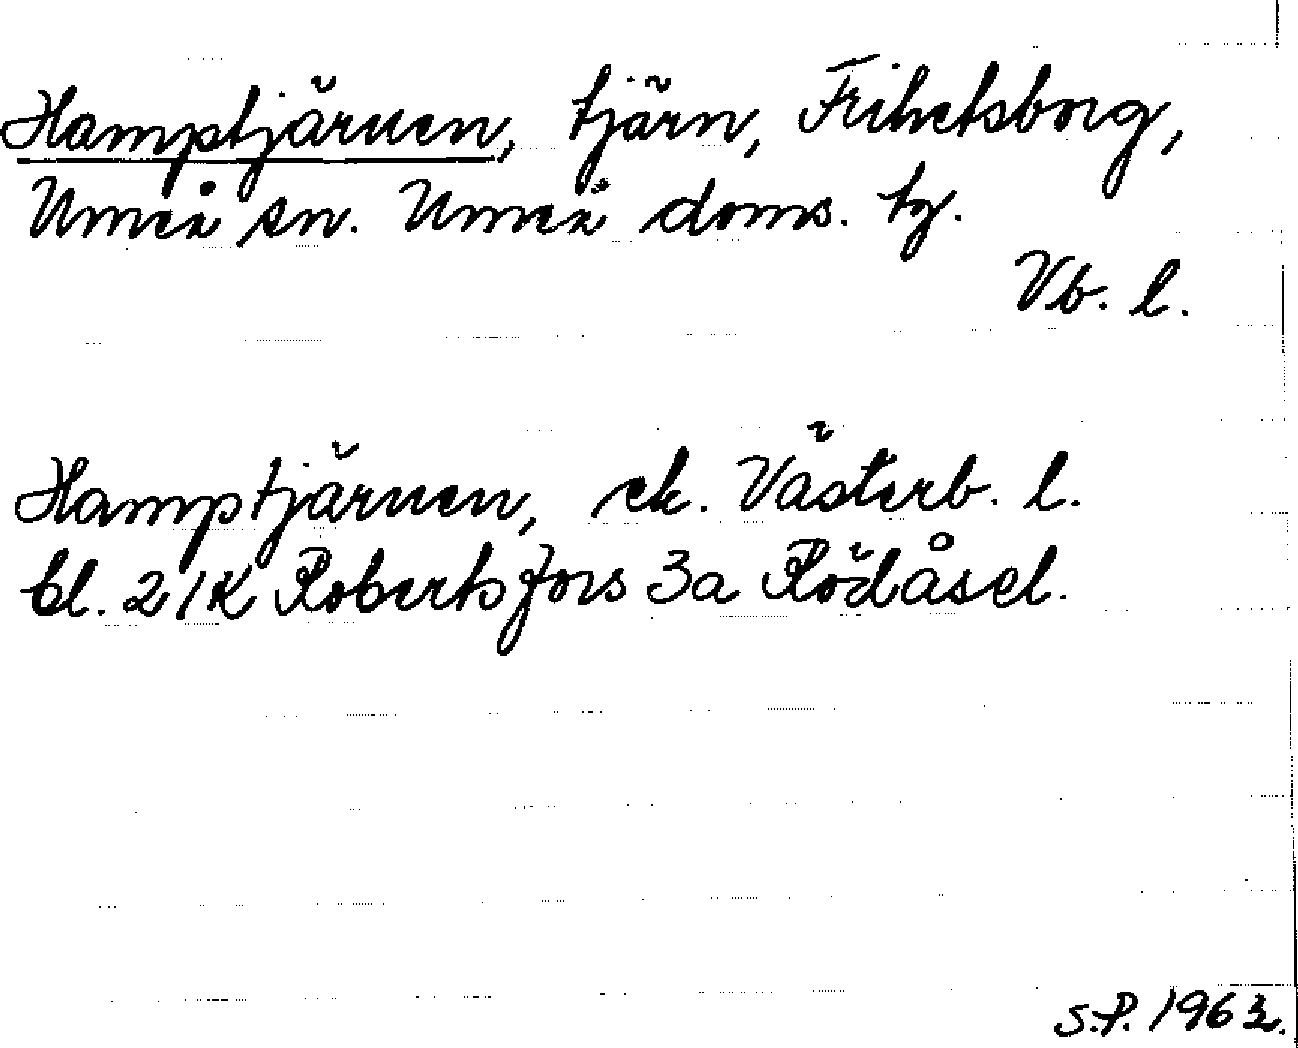 Hamptjärnen, tjärn, Frihetsborg,
Umeå sn. Umeå doms. tg.
Vb. l.
Hamptjärnen, ek. Västerb. l.
bl. 21K Robertsfors 3a Rödåsel.
S.P. 1963.